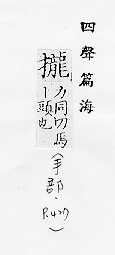 四聲篇海
攏
力同切馬
丨頭也
(手部.
P.427)